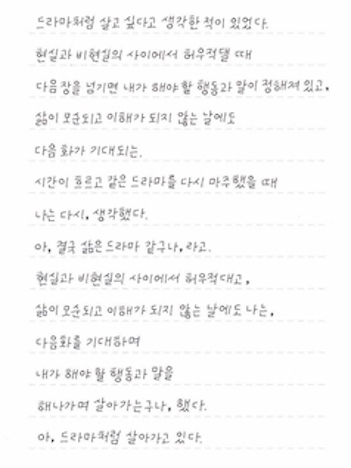 드라마처럼 살고 싶다고 생각한 적이 있었다.
현실과 비현실의 사이에서 허우적댈 때
다음 장을 넘기면 내가 해야 할 행동과 말이 정해져 있고,
삶이 모순되고 이해가 되지 않는 날에도
다음 화가 기대되는.
시간이 흐르고 같은 드라마를 다시 마주했을 때
나는 다시, 생각했다.
아, 결국 삶은 드라마 같구나, 라고.
현실과 비현실의 사이에서 허우적대고,
삶이 모순되고 이해가 되지 않는 날에도 나는,
다음화를 기대하며
내가 해야 할 행동과 말을
해나가며 살아가는구나, 했다.
아, 드라마처럼 살아가고 있다.